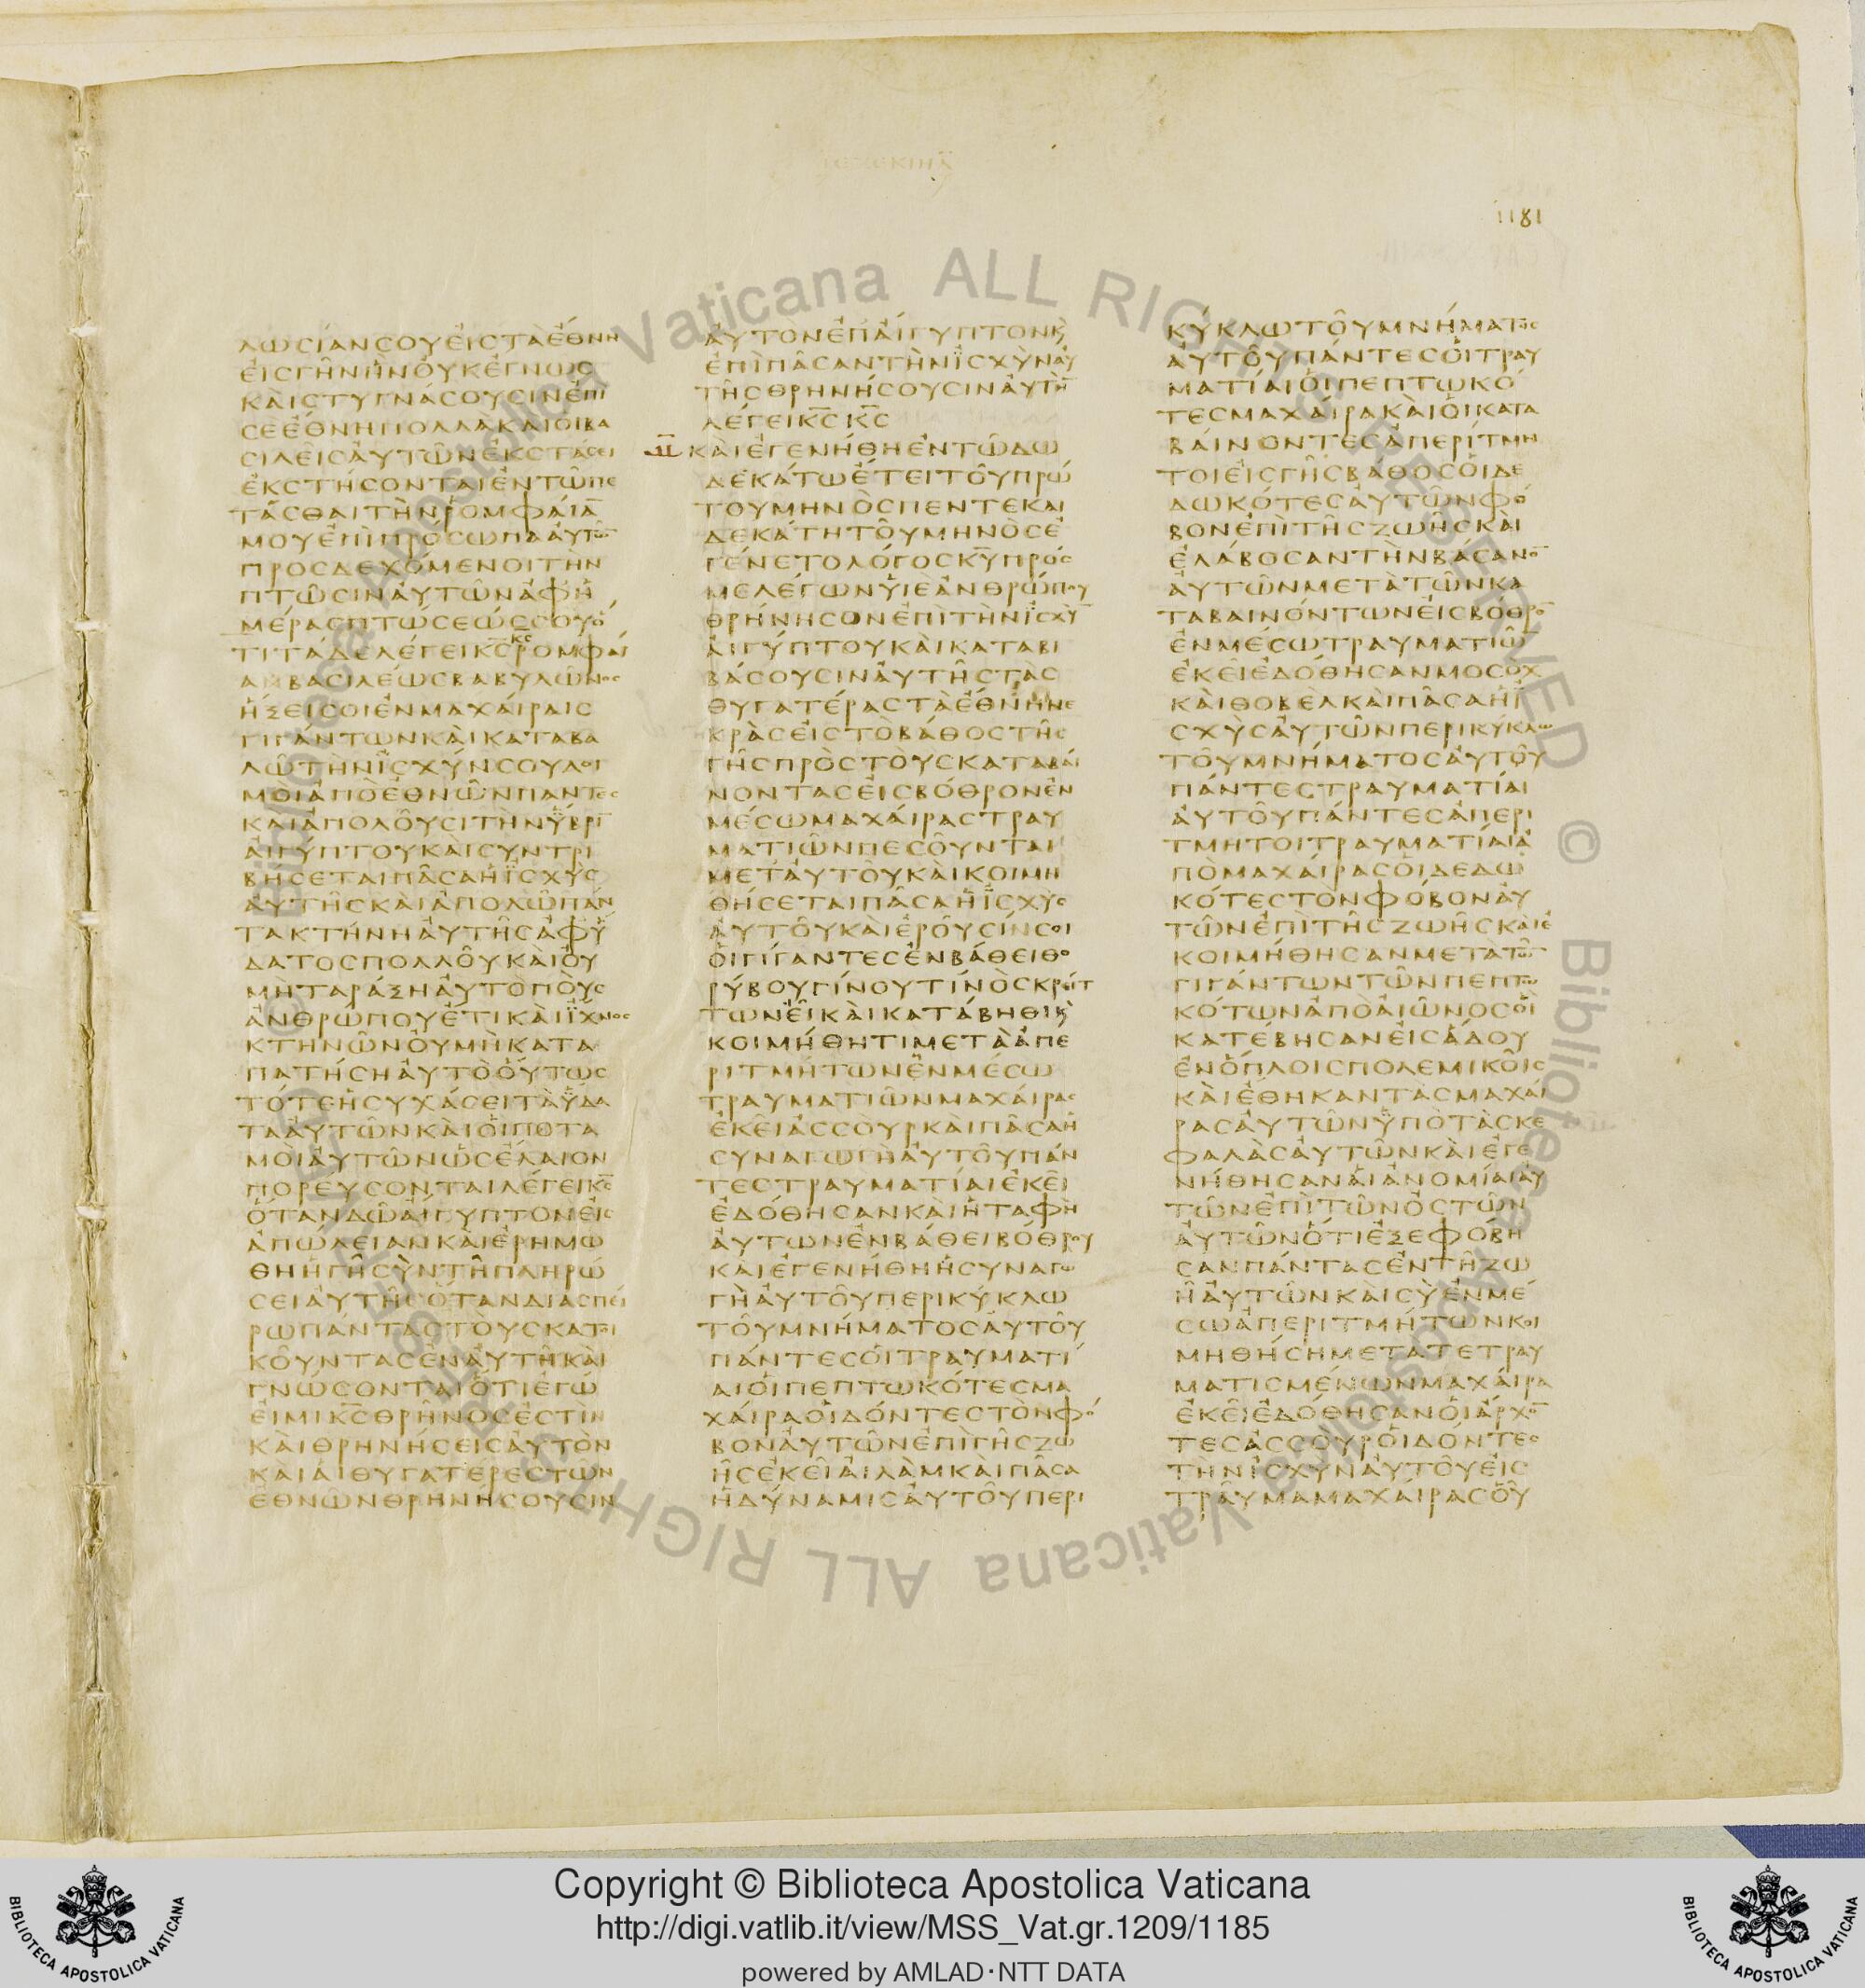 ΙΕΖΕΚΙΗΛ
1181
ΛωϹΙΑΝϹΟΥΕΙϹΤΑΕΘΝΗ
ΕΙϹΓΗΝΗΝΟΥΚΕΓΝωϹ
ΚΑΙϹΤΥΓΝΑϹΟΥϹΙΝΕΠΙ
ϹΕΕΘΝΗΠΟΛΛΑΚΑΙΟΙΒΑ
ϹΙΛΕΙϹΑΥΤωΝΕΚϹΤΑϹΕΙ
ΕΚϹΤΗϹΟΝΤΑΙΕΝΤωΠΕ
ΤΑϹΘΑΙΤΗΝΡΟΜΦΑΙΑ̅
ΜΟΥΕΠΙΠΡΟϹωΠΑΑΥΤω̅
ΠΡΟϹΔΕΧΟΜΕΝΟΙΤΗΝ
ΠΤωϹΙΝΑΥΤωΝΑΦΗ
ΜΕΡΑϹΠΤωϹΕωϹϹΟΥΟ
ΤΙΤΑΔΕΛΕΓΕΙΚ̅Ϲ̅ΡΟΜΦΑΙ
ΑΒΑϹΙΛΕωϹΒΑΒΥΛωΝΟϹ
ΗΞΕΙϹΟΙΕΝΜΑΧΑΙΡΑΙϹ
ΓΙΓΑΝΤωΝΚΑΙΚΑΤΑΒΑ
ΛωΤΗΝΙϹΧΥΝϹΟΥΛΟΙ
ΜΟΙΑΠΟΕΘΝωΝΠΑΝΤΕϹ
ΚΑΙΑΠΟΛΟΥϹΙΤΗΝΥΒΡΙ̅
ΑΙΓΥΠΤΟΥΚΑΙϹΥΝΤΡΙ
ΒΗϹΕΤΑΙΠΑϹΑΗΙϹΧΥϹ
ΑΥΤΗϹΚΑΙΑΠΟΛωΠΑΝ
ΤΑΚΤΗΝΗΑΥΤΗϹΑΦΥ
ΔΑΤΟϹΠΟΛΛΟΥΚΑΙΟΥ
ΜΗΤΑΡΑΞΗΑΥΤΟΠΟΥϹ
ΑΝΘΡωΠΟΥΕΤΙΚΑΙΙΧΝΟϹ
ΚΤΗΝωΝΟΥΜΗΚΑΤΑ
ΠΑΤΗϹΗΑΥΤΟΟΥΤωϹ
ΤΟΤΕΗϹΥΧΑϹΕΙΤΑΥΔΑ
ΤΑΑΥΤωΝΚΑΙΟΙΠΟΤΑ
ΜΟΙΑΥΤωΝωϹΕΛΑΙΟΝ
ΠΟΡΕΥϹΟΝΤΑΙΛΕΓΕΙΚ̅Ϲ̅
ΟΤΑΝΔωΑΙΓΥΠΤΟΝΕΙϹ
ΑΠωΛΕΙΑΝΚΑΙΕΡΗΜω
ΘΗΗΓΗϹΥΝΤΗΠΛΗΡω
ϹΕΙΑΥΤΗϹΟΤΑΝΔΙΑϹΠΕΙ
ΡωΠΑΝΤΑϹΤΟΥϹΚΑΤΟΙ
ΚΟΥΝΤΑϹΕΝΑΥΤΗΚΑΙ
ΓΝωϹΟΝΤΑΙΟΤΙΕΓω
ΕΙΜΙΚ̅Ϲ̅ΘΡΗΝΟϹΕϹΤΙΝ
ΚΑΙΘΡΗΝΗϹΕΙϹΑΥΤΟΝ
ΚΑΙΑΙΘΥΓΑΤΕΡΕϹΤωΝ
ΕΘΝωΝΘΡΗΝΗϹΟΥϹΙΝ
ΑΥΤΟΝΕΠΑΙΓΥΠΤΟΝΚ
ΕΠΙΠΑϹΑΝΤΗΝΙϹΧΥΝΑΥ
ΤΗϹΘΡΗΝΗϹΟΥϹΙΝΑΥΤΗ̅
ΛΕΓΕΙΚ̅Ϲ̅Κ̅Ϲ̅
ΚΑΙΕΓΕΝΗΘΗΕΝΤωΔω
ΔΕΚΑΤωΕΤΕΙΤΟΥΠΡω
ΤΟΥΜΗΝΟϹΠΕΝΤΕΚΑΙ
ΔΕΚΑΤΗΤΟΥΜΗΝΟϹΕ
ΓΕΝΕΤΟΛΟΓΟϹΚ̅Υ̅ΠΡΟϹ
ΜΕΛΕΓωΝΥΙΕΑΝΘΡωΠΟΥ
ΘΡΗΝΗϹΟΝΕΠΙΤΗΝΙϹΧΥ̅
ΑΙΓΥΠΤΟΥΚΑΙΚΑΤΑΒΙ
ΒΑϹΟΥϹΙΝΑΥΤΗϹΤΑϹ
ΘΥΓΑΤΕΡΑϹΤΑΕΘΝΗΝΕ
ΚΡΑϹΕΙϹΤΟΒΑΘΟϹΤΗϹ
ΓΗϹΠΡΟϹΤΟΥϹΚΑΤΑΒΑΙ
ΝΟΝΤΑϹΕΙϹΒΟΘΡΟΝΕΝ
ΜΕϹωΜΑΧΑΙΡΑϹΤΡΑΥ
ΜΑΤΙωΝΠΕϹΟΥΝΤΑΙ
ΜΕΤΑΥΤΟΥΚΑΙΚΟΙΜΗ
ΘΗϹΕΤΑΙΠΑϹΑΗΙϹΧΥϹ
ΑΥΤΟΥΚΑΙΕΡΟΥϹΙΝϹΟΙ
ΟΙΓΙΓΑΝΤΕϹΕΝΒΑΘΕΙΘΟ
ΡΥΒΟΥΓΙΝΟΥΤΙΝΟϹΚΡΕΙΤ
ΤωΝΕΙΚΑΙΚΑΤΑΒΗΘΙΚ
ΚΟΙΜΗΘΗΤΙΜΕΤΑΑΠΕ
ΡΙΤΜΗΤωΝΕΝΜΕϹω
ΤΡΑΥΜΑΤΙωΝΜΑΧΑΙΡΑϹ
ΕΚΕΙΑϹϹΟΥΡΚΑΙΠΑϹΑΗ
ϹΥΝΑΓωΓΗΑΥΤΟΥΠΑΝ
ΤΕϹΤΡΑΥΜΑΤΙΑΙΕΚΕΙ
ΕΔΟΘΗϹΑΝΚΑΙΗΤΑΦΗ
ΑΥΤωΝΕΝΒΑΘΕΙΒΟΘΡΟΥ
ΚΑΙΕΓΕΝΗΘΗΗϹΥΝΑΓω
ΓΗΑΥΤΟΥΠΕΡΙΚΥΚΛω
ΤΟΥΜΝΗΜΑΤΟϹΑΥΤΟΥ
ΠΑΝΤΕϹΟΙΤΡΑΥΜΑΤΙ
ΑΙΟΙΠΕΠΤωΚΟΤΕϹΜΑ
ΧΑΙΡΑΟΙΔΟΝΤΕϹΤΟΝΦΟ
ΒΟΝΑΥΤωΝΕΠΙΓΗϹΖω
ΗϹΕΚΕΙΑΙΛΑΜΚΑΙΠΑϹΑ
ΗΔΥΝΑΜΙϹΑΥΤΟΥΠΕΡΙ
ΚΥΚΛωΤΟΥΜΝΗΜΑΤΟϹ
ΑΥΤΟΥΠΑΝΤΕϹΟΙΤΡΑΥ
ΜΑΤΙΑΙΟΙΠΕΠΤωΚΟ
ΤΕϹΜΑΧΑΙΡΑΚΑΙΟΙΚΑΤΑ
ΒΑΙΝΟΝΤΕϹΑΠΕΡΙΤΜΗ
ΤΟΙΕΙϹΓΗϹΒΑΘΟϹΟΙΔΕ
ΔωΚΟΤΕϹΑΥΤωΝΦΟ
ΒΟΝΕΠΙΤΗϹΖωΗϹΚΑΙ
ΕΛΑΒΟϹΑΝΤΗΝΒΑϹΑΝΟ̅
ΑΥΤωΝΜΕΤΑΤωΝΚΑ
ΤΑΒΑΙΝΟΝΤωΝΕΙϹΒΟΘΡΟ̅
ΕΝΜΕϹωΤΡΑΥΜΑΤΙω̅
ΕΚΕΙΕΔΟΘΗϹΑΝΜΟϹΟΧ
ΚΑΙΘΟΒΕΛΚΑΙΠΑϹΑΗΙ
ϹΧΥϹΑΥΤωΝΠΕΡΙΚΥΚΛω
ΤΟΥΜΝΗΜΑΤΟϹΑΥΤΟΥ
ΠΑΝΤΕϹΤΡΑΥΜΑΤΙΑΙ
ΑΥΤΟΥΠΑΝΤΕϹΑΠΕΡΙ
ΤΜΗΤΟΙΤΡΑΥΜΑΤΙΑΙΑ
ΠΟΜΑΧΑΙΡΑϹΟΙΔΕΔω
ΚΟΤΕϹΤΟΝΦΟΒΟΝΑΥ
ΤωΝΕΠΙΤΗϹΖωΗϹΚΑΙΕ
ΚΟΙΜΗΘΗϹΑΝΜΕΤΑΤω̅
ΓΙΓΑΝΤωΝΤωΝΠΕΠΤω
ΚΟΤωΝΑΠΟΑΙωΝΟϹΟΙ
ΚΑΤΕΒΗϹΑΝΕΙϹΑΔΟΥ
ΕΝΟΠΛΟΙϹΠΟΛΕΜΙΚΟΙϹ
ΚΑΙΕΘΗΚΑΝΤΑϹΜΑΧΑΙ
ΡΑϹΑΥΤωΝΥΠΟΤΑϹΚΕ
ΦΑΛΑϹΑΥΤωΝΚΑΙΕΓΕ
ΝΗΘΗϹΑΝΑΙΑΝΟΜΙΑΙΑΥ
ΤωΝΕΠΙΤωΝΟϹΤωΝ
ΑΥΤωΝΟΤΙΕΞΕΦΟΒΗ
ϹΑΝΠΑΝΤΑϹΕΝΤΗΖω
ΗΑΥΤωΝΚΑΙϹΥΕΝΜΕ
ϹωΑΠΕΡΙΤΜΗΤωΝΚΟΙ
ΜΗΘΗϹΗΜΕΤΑΤΕΤΡΑΥ
ΜΑΤΙϹΜΕΝωΝΜΑΧΑΙΡΑ
ΕΚΕΙΕΔΟΘΗϹΑΝΟΙΑΡΧΟ̅
ΤΕϹΑϹϹΟΥΡΟΙΔΟΝΤΕϹ
ΤΗΝΙϹΧΥΝΑΥΤΟΥΕΙϹ
ΤΡΑΥΜΑΜΑΧΑΙΡΑϹΟΥ
Biblioteca Apostolica Vaticana ALL RIGHTS RESERVED © Biblioteca Apostolica Vaticana ALL RIGHTS RESERVED ©
Copyright © Biblioteca Apostolica Vaticana
http://digi.vatlib.it/view/MSS_Vat.gr.1209/1185
powered by AMLAD·NTT DATA
BIBLIOTECA APOSTOLICA VATICANA
BIBLIOTECA APOSTOLICA VATICANA